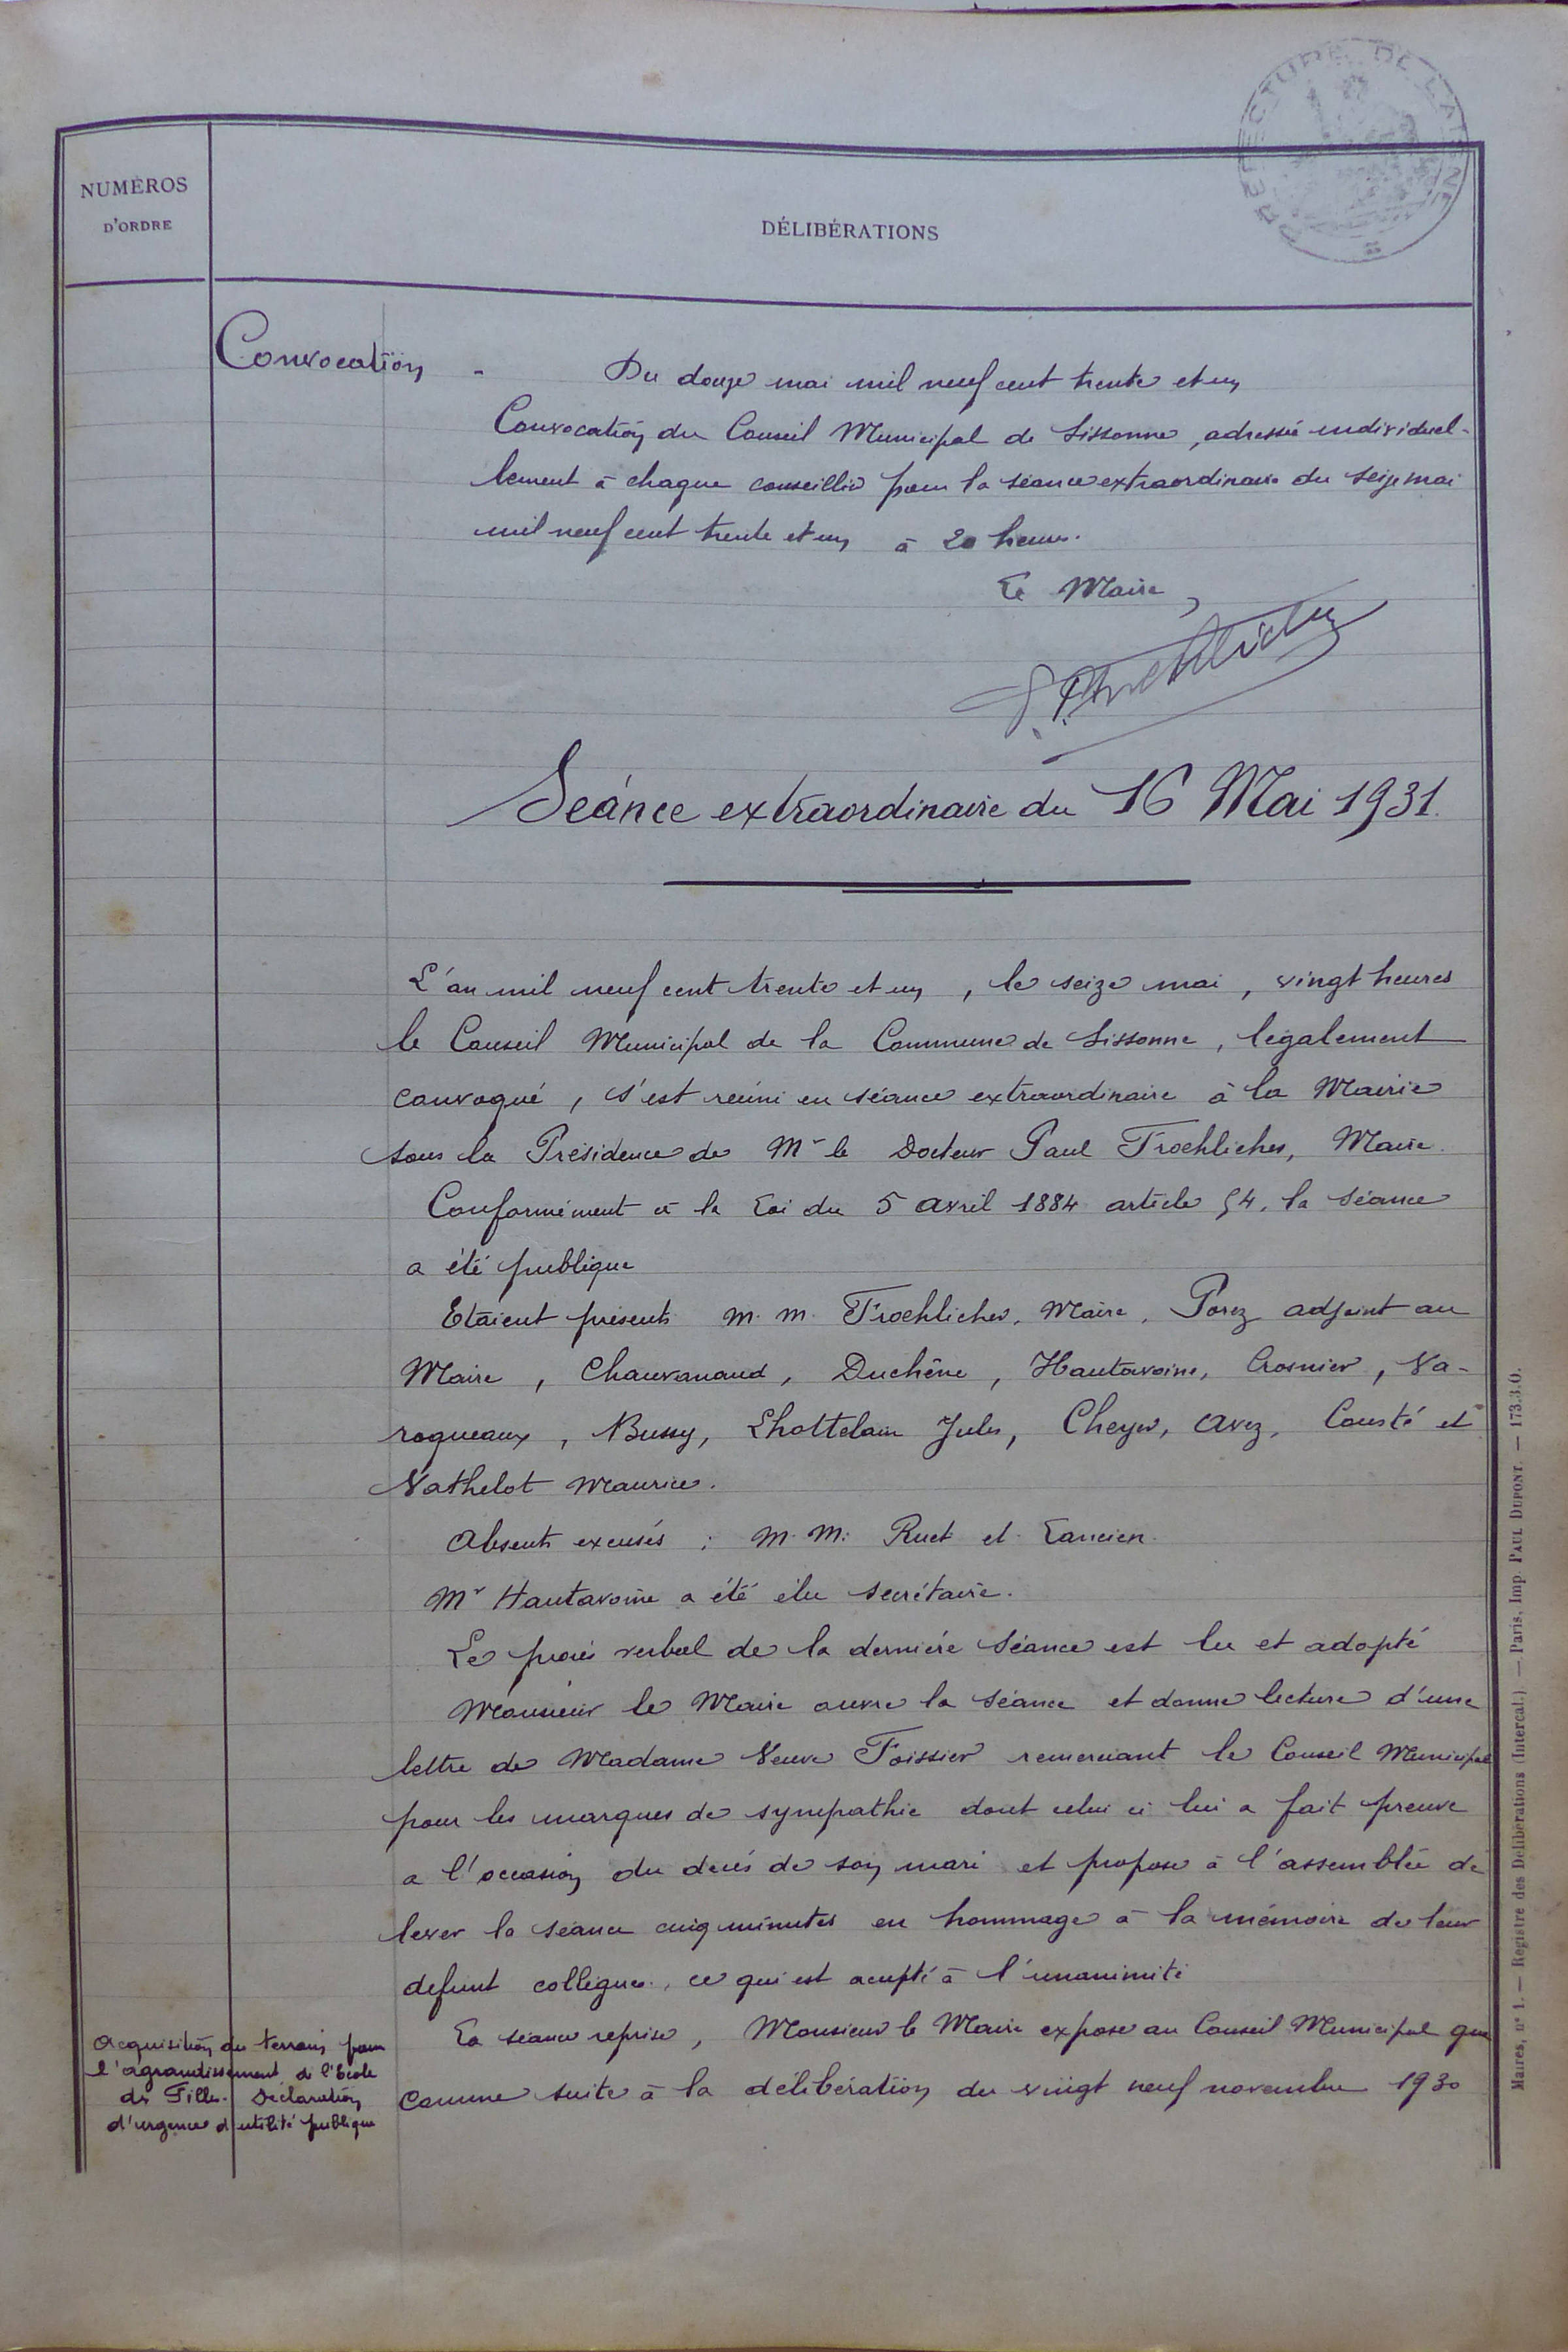 PREFECTURE DE L'AISNE
NUMÉROS
D'ORDRE
DÉLIBÉRATIONS
Convocation -
Du douze mai mil neuf cent trente et un
Convocation du Conseil Municipal de Sissonne, adressée individuel-
lement à chaque conseiller pour la séance extraordinaire du seize mai
mil neuf cent trente et un à 20 heures.
Le Maire,
Séance extraordinaire du 16 Mai 1931.
L'an mil neuf cent trente et un, le seize mai, vingt heures
le Conseil Municipal de la Commune de Sissonne, légalement
convoqué, s'est réuni en séance extraordinaire à la Mairie
sous la Présidence de Mr le Docteur Paul Froehlicher, Maire.
Conformément à la Loi du 5 avril 1884 article 54, la séance
a été publique
Etaient présents M. M. Froehlicher, Maire, Porez adjoint au
Maire, Chauvanaud, Duchêne, Hautavoine, Crosnier, Va-
roqueaux, Bussy, Lhottelain Jules, Cheyer, Avez, Cousté et
Vathelot Maurice.
Absents excusés : M. M. Ruet et Lancien.
Mr Hautavoine a été élu secrétaire.
Le procès verbal de la dernière séance est lu et adopté
Monsieur le Maire ouvre la séance et donne lecture d'une
lettre de Madame Veuve Foissier remerciant le Conseil Municipal
pour les marques de sympathie dont celui ci lui a fait preuve
a l'occasion du décès de son mari et propose à l'assemblée de
lever la séance cinq minutes en hommage à la mémoire de leur
defunt collègue, ce qui est accepté à l'unanimité
La séance reprise, Monsieur le Maire expose au Conseil Municipal que
comme suite à la délibération du vingt neuf novembre 1930
Acquisition du terrain pour
l'agrandissement de l'Ecole
de Filles. Déclaration
d'urgence d'utilité publique
Maires, n° 1. — Registre des Délibérations (Intercal.) — Paris, Imp. PAUL DUPONT. — 173.3.0.